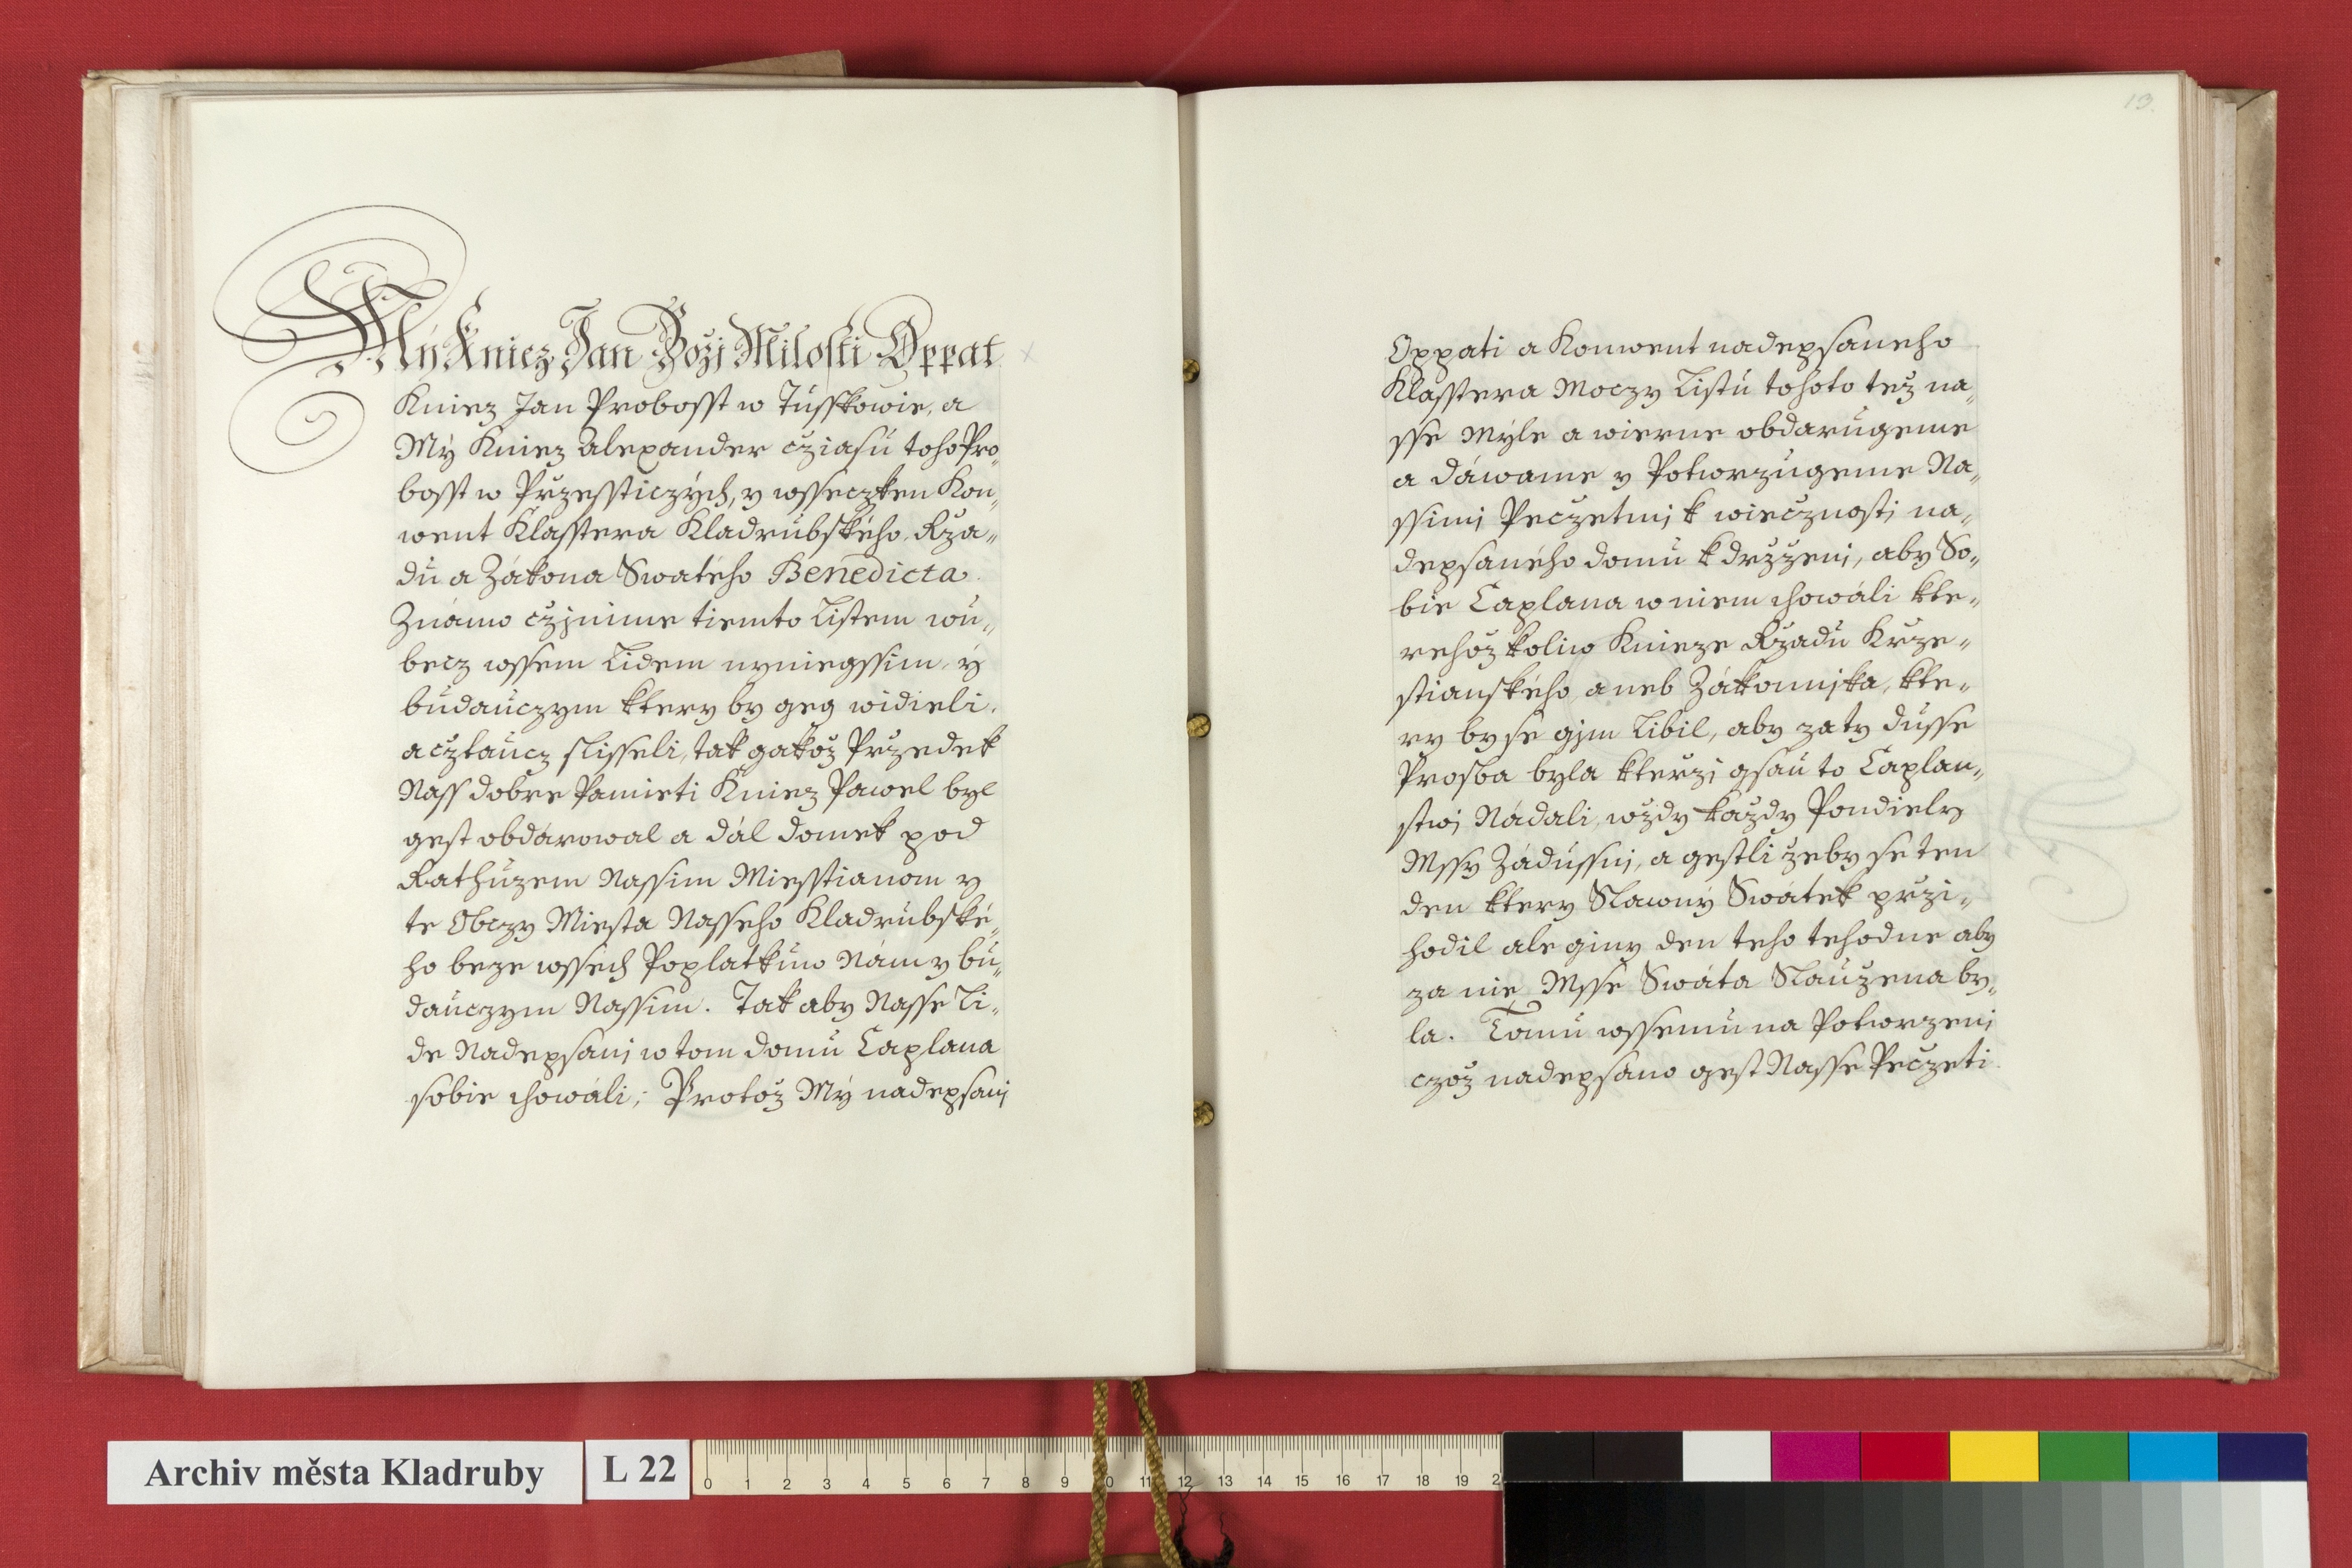 Mý Kniez Jan Božj Milosti Oppat
Kniez Jan Probosst w Tusskowie, a
Mý Kniez Alexander cziasu toho Pro„
bosst w Przessticzých, y wsseczken Kon„
went Klasstera Kladrubského, Rza„
du a Zákona Swatého Benedicta.
Známo czjnime tiemto Listem wu„
becz wssem Lidem nyniegssim, ý
budauczym ktery by geg widieli,
a cztaucz slisseli, tak gakož Przedek
Nass dobre Pamieti Kniez Pawel byl
gest obdárowal a dál domek pod
Rathuzem Nassim Miesstianom y
te Obczy Miesta Nasseho Kladrubské„
ho beze wssech Poplatkuw Nám y bu„
dauczym Nassim. Tak aby Nasse Li„
de Nadepsanj w tom domu Caplana
sobie chowáli; Protož Mý nadepsanj
13.
Oppati a Konwent nadepsaneho
Klasstera Moczy Listu tohoto též na„
sse Mýle a wierne obdarugeme
a dáwame y Potworzugeme Na„
ssimj Peczetmj k wiecznosti na„
depsaného domu k drzženj, aby So„
bie Caplana w niem chowáli kte„
rehož koliw Knieze Rzadu Krze„
stianského, aneb Zákonnjka, kte„
ry by se gjm Libil, aby za ty dusse
Prosba byla kterzj gsau to Caplan„
stwj Nádali, wždy každy Pondiely
Mssy Zádussnj, a gestli žeby se ten
den ktery Slawný Swatek przi„
hodil ale giny den teho tehodne aby
za nie Msse Swáta Slaužena by„
la. Tomu wssemu na Potworzenj
czož nadepsano gest Nasse Peczeti
Archiv města Kladruby
L 22
0 1 2 3 4 5 6 7 8 9 10 11 12 13 14 15 16 17 18 19 2